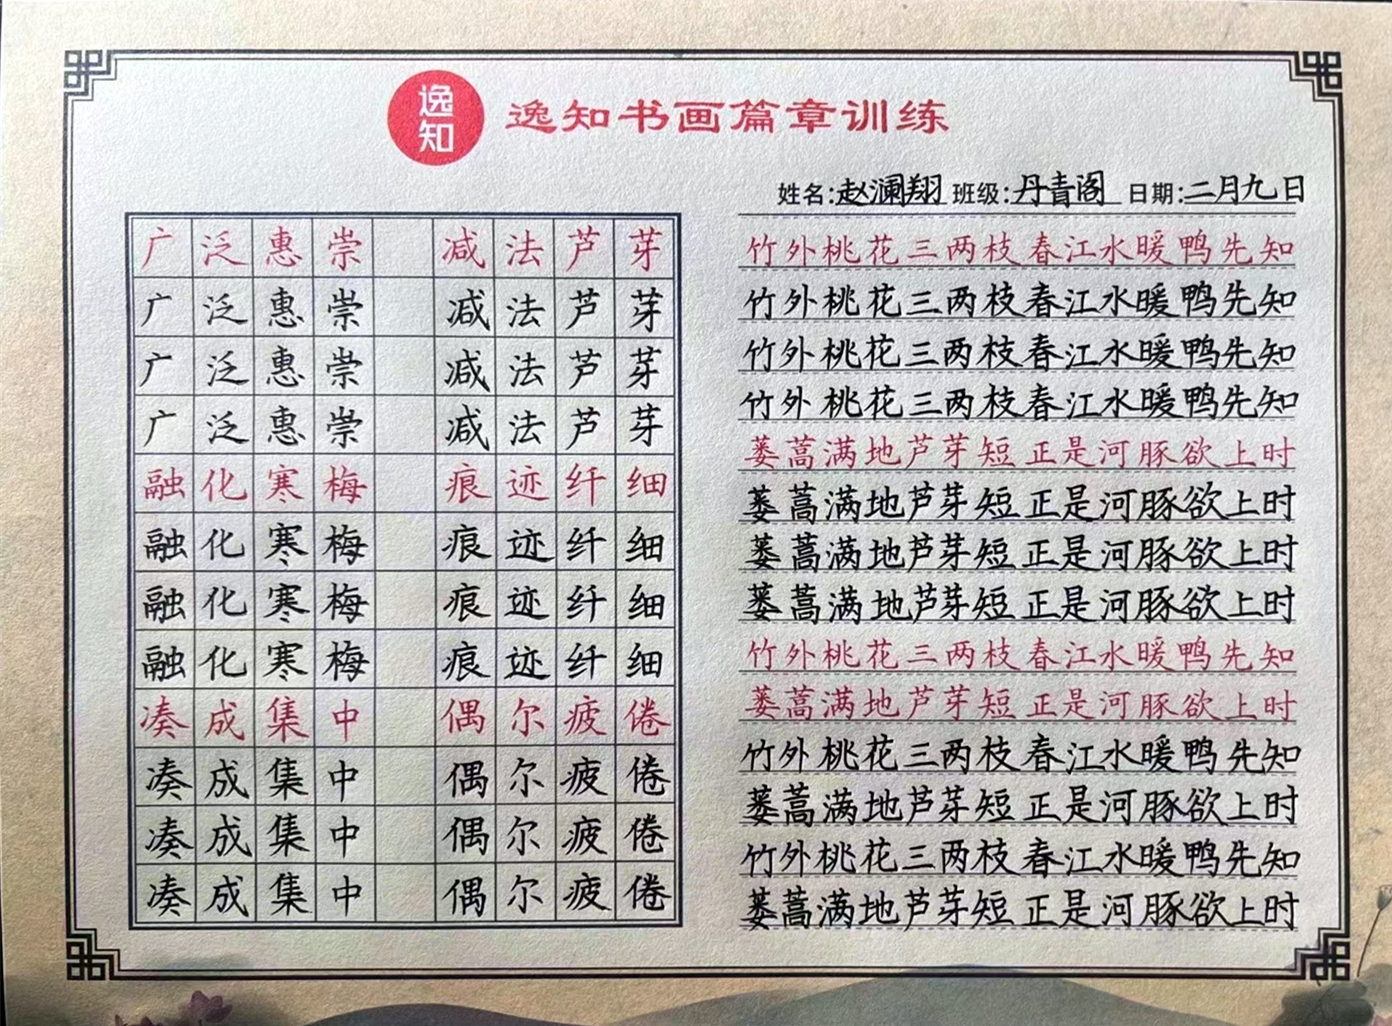 逸知
逸知书画篇章训练
姓名:赵澜翔 班级:丹青阁 日期:二月九日
广泛惠崇 减法芦芽
广泛惠崇 减法芦芽
广泛惠崇 减法芦芽
广泛惠崇 减法芦芽
融化寒梅 痕迹纤细
融化寒梅 痕迹纤细
融化寒梅 痕迹纤细
融化寒梅 痕迹纤细
凑成集中 偶尔疲倦
凑成集中 偶尔疲倦
凑成集中 偶尔疲倦
凑成集中 偶尔疲倦
竹外桃花三两枝春江水暖鸭先知
竹外桃花三两枝春江水暖鸭先知
竹外桃花三两枝春江水暖鸭先知
竹外桃花三两枝春江水暖鸭先知
蒌蒿满地芦芽短正是河豚欲上时
蒌蒿满地芦芽短正是河豚欲上时
蒌蒿满地芦芽短正是河豚欲上时
蒌蒿满地芦芽短正是河豚欲上时
竹外桃花三两枝春江水暖鸭先知
蒌蒿满地芦芽短正是河豚欲上时
竹外桃花三两枝春江水暖鸭先知
蒌蒿满地芦芽短正是河豚欲上时
竹外桃花三两枝春江水暖鸭先知
蒌蒿满地芦芽短正是河豚欲上时